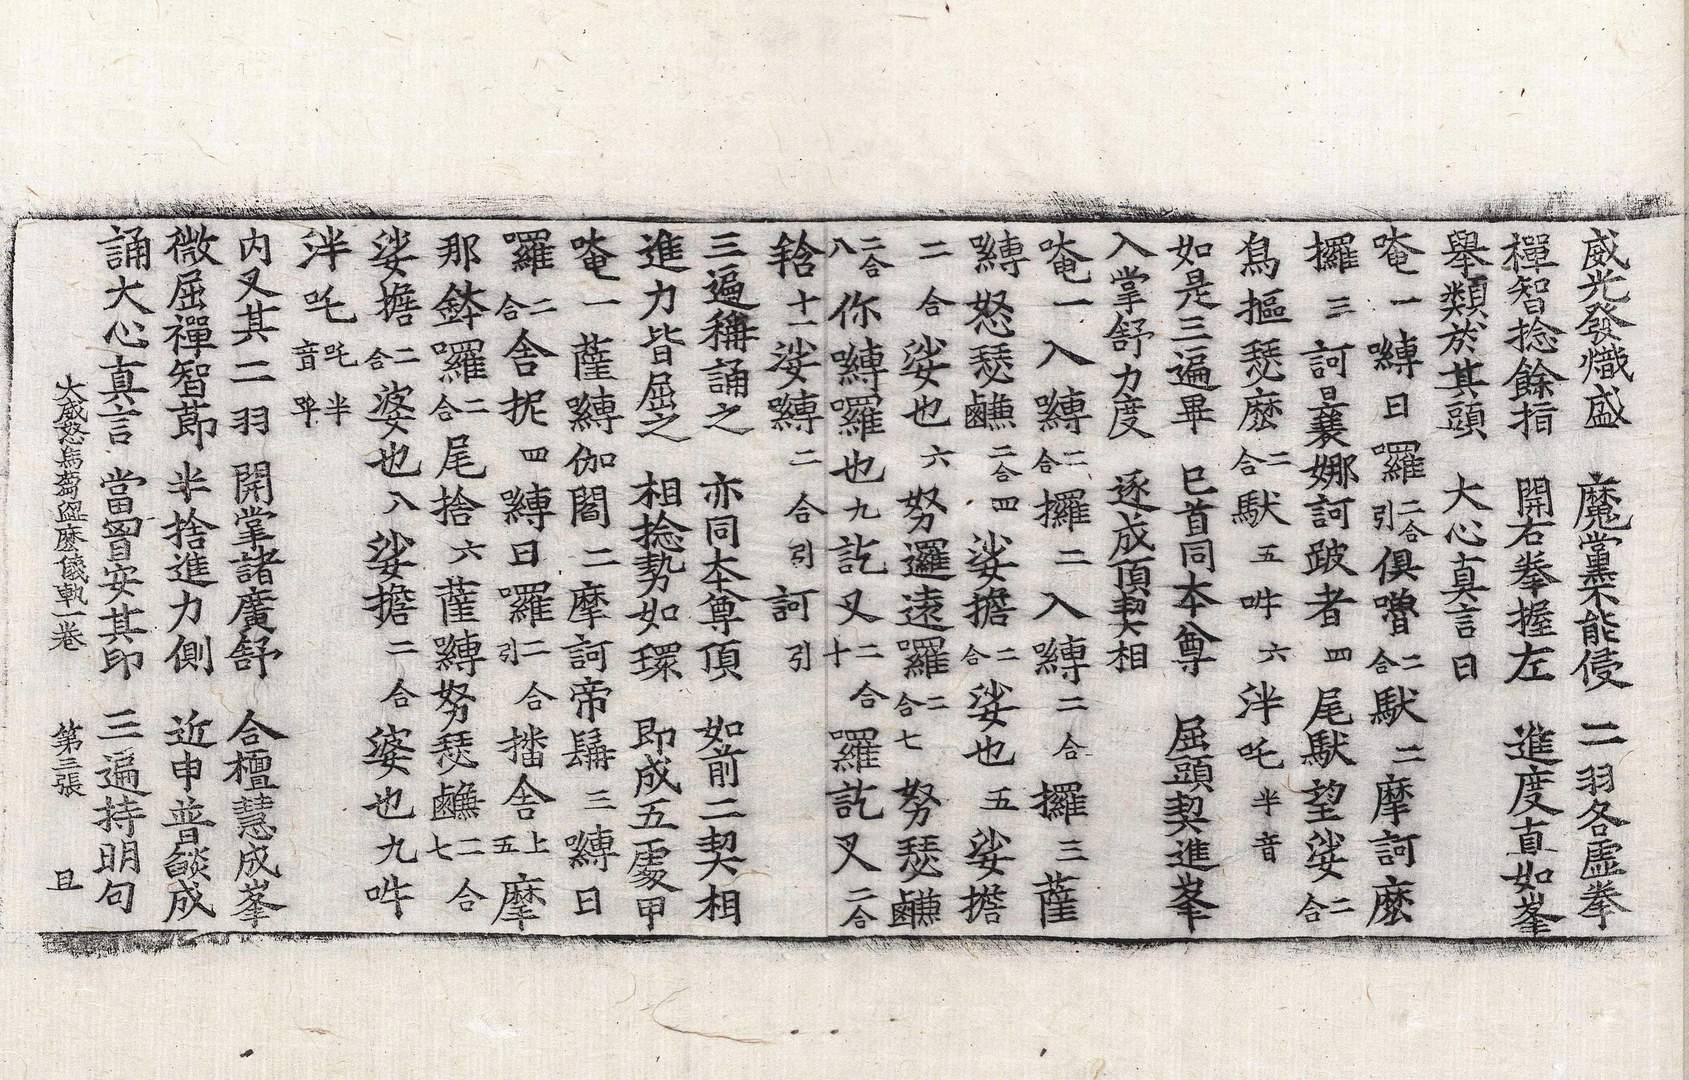 威光發熾盛 魔黨不能侵 二羽各虛拳
禪智捻餘指 開右拳握左 進度直如峯
舉類於其頭 大心真言曰
唵一嚩日囉二合引俱嚕二合馱二摩訶麽
攞三訶曩娜訶跛者四尾馱望娑二合
烏摳瑟麽二合馱五吽六泮吒半音
如是三遍畢 已首同本尊 屈頭契進峯
入掌舒力度 遂成頂契相
唵一入嚩二合攞二入嚩二合攞三薩
嚩怒瑟鑣二合四娑擔二合娑也五娑擔
二合娑也六努邏遠囉二合七努瑟鑣
二合八你嚩囉也九訖叉二合十羅訖叉二合
𤚥十一娑嚩二合引訶引
三遍稱誦之 亦同本尊頂 如前二契相
進力皆屈之 相捻勢如環 即成五處甲
唵一薩嚩伽閻二摩訶帝髵三嚩日
囉二合舍抳四嚩日囉二合引播舍上五摩
那鉢囉二合尾捨六薩嚩努瑟鑣二合七
娑擔二合婆也八娑擔二合婆也九吽
泮吒吒半音呼
内叉其二羽 開掌諸廣舒 合檀慧成峯
微屈禪智節 半捨進力側 近申普燄成
誦大心真言 當胷安其印 三遍持明句
大威怒烏蒭澁麽儀軌一卷 第三張 且